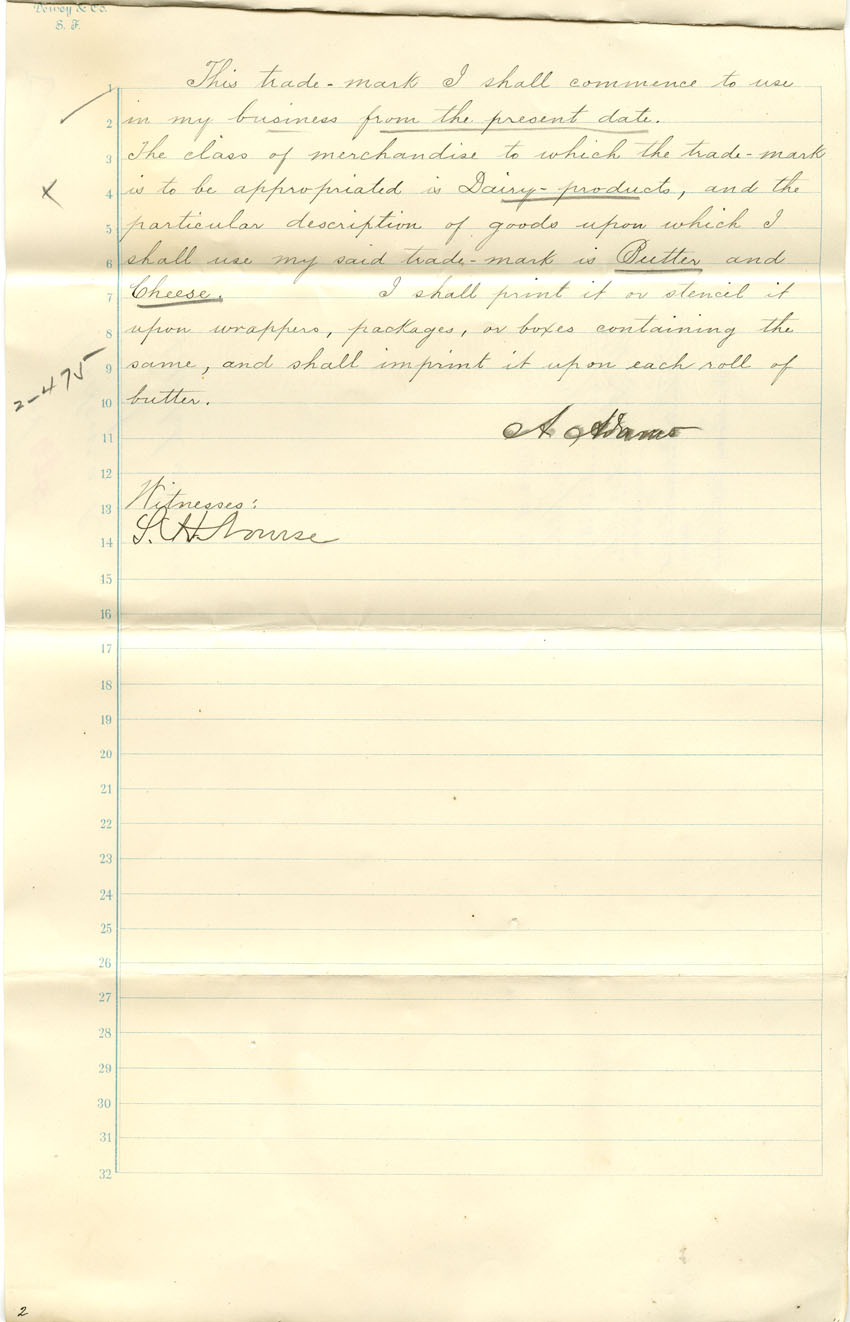 Dewey & Co.
S. F.
1 This trade-mark I shall commence to use
2 in my business from the present date.
3 The class of merchandise to which the trade-mark
X
4 is to be appropriated is Dairy-products, and the
5 particular description of goods upon which I
6 shall use my said trade-mark is Butter and
7 Cheese. I shall print it or stencil it
8 upon wrappers, packages, or boxes containing the
9 same, and shall imprint it upon each roll of
2-475
10 butter.
11 A Adams
12
13 Witnesses:
14 S. H. Nourse
15
16
17
18
19
20
21
22
23
24
25
26
27
28
29
30
31
32
2